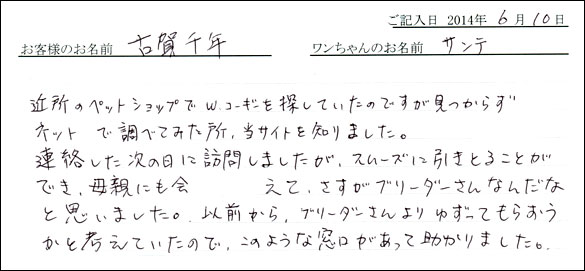 ご記入日 2014年 6月10日
お客様のお名前 古賀千年 ワンちゃんのお名前 サンテ
近所のペットショップでW.コーギーを探していたのですが見つからず
ネット で調べてみた所、当サイトを知りました。
連絡した次の日に訪問しましたが、スムーズに引きとることが
でき、母親にも会 えて、さすがブリーダーさんなんだな
と思いました。以前から、ブリーダーさんよりゆずってもらおう
かと考えていたので、このような窓口があって助かりました。